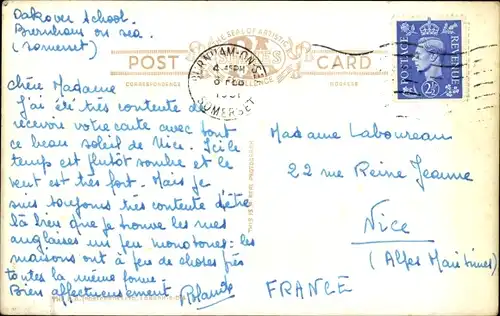 Oakover School.
Burnham on sea.
(Somerset)
THE SEAL OF ARTISTIC
POST CARD
CORRESPONDENCE
ADDRESS
BURNHAM-ON-SEA
4 45PM
8 FEB
SOMERSET
POSTAGE REVENUE
2½D
Chère Madame
J'ai été très contente de
recevoir votre carte avec tout
ce beau soleil de Nice. Ici le
temps est plutôt sombre et le
vent est très fort. Mais je
suis toujours très contente d'être
là bien que je trouve les rues
anglaises un peu monotones: les
maisons ont à peu de choses près
toutes la même forme.
Bien affectueusement
THIS IS A REAL PHOTOGRAPH
Madame Laboureau
22 rue Reine Jeanne
Nice
(Alpes Maritimes)
FRANCE